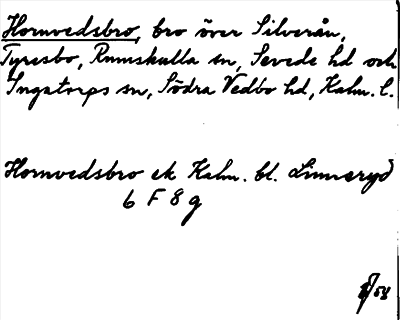 Hornvedsbro, bro över Silverån,
Tyresbo, Rumskulla sn, Sevede hd och
Ingatorps sn, Södra Vedbo hd, Kalm. l.
Hornvedsbro ek Kalm. bl. Linneryd
6 F 8 g